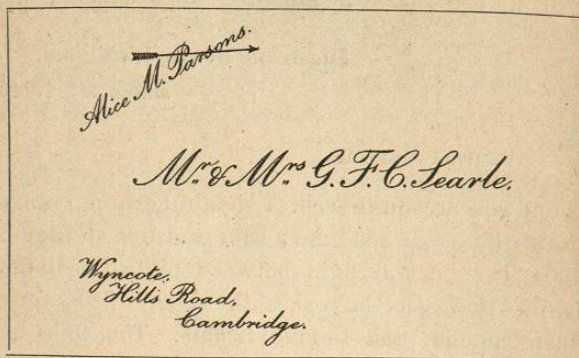 Alice M. Parsons.
Mr. & Mrs. G. F. C. Searle.
Wyncote,
Hills Road,
Cambridge.